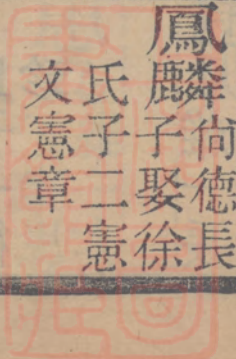 鳳麟
尚德長
子娶徐
氏子二憲
文憲章